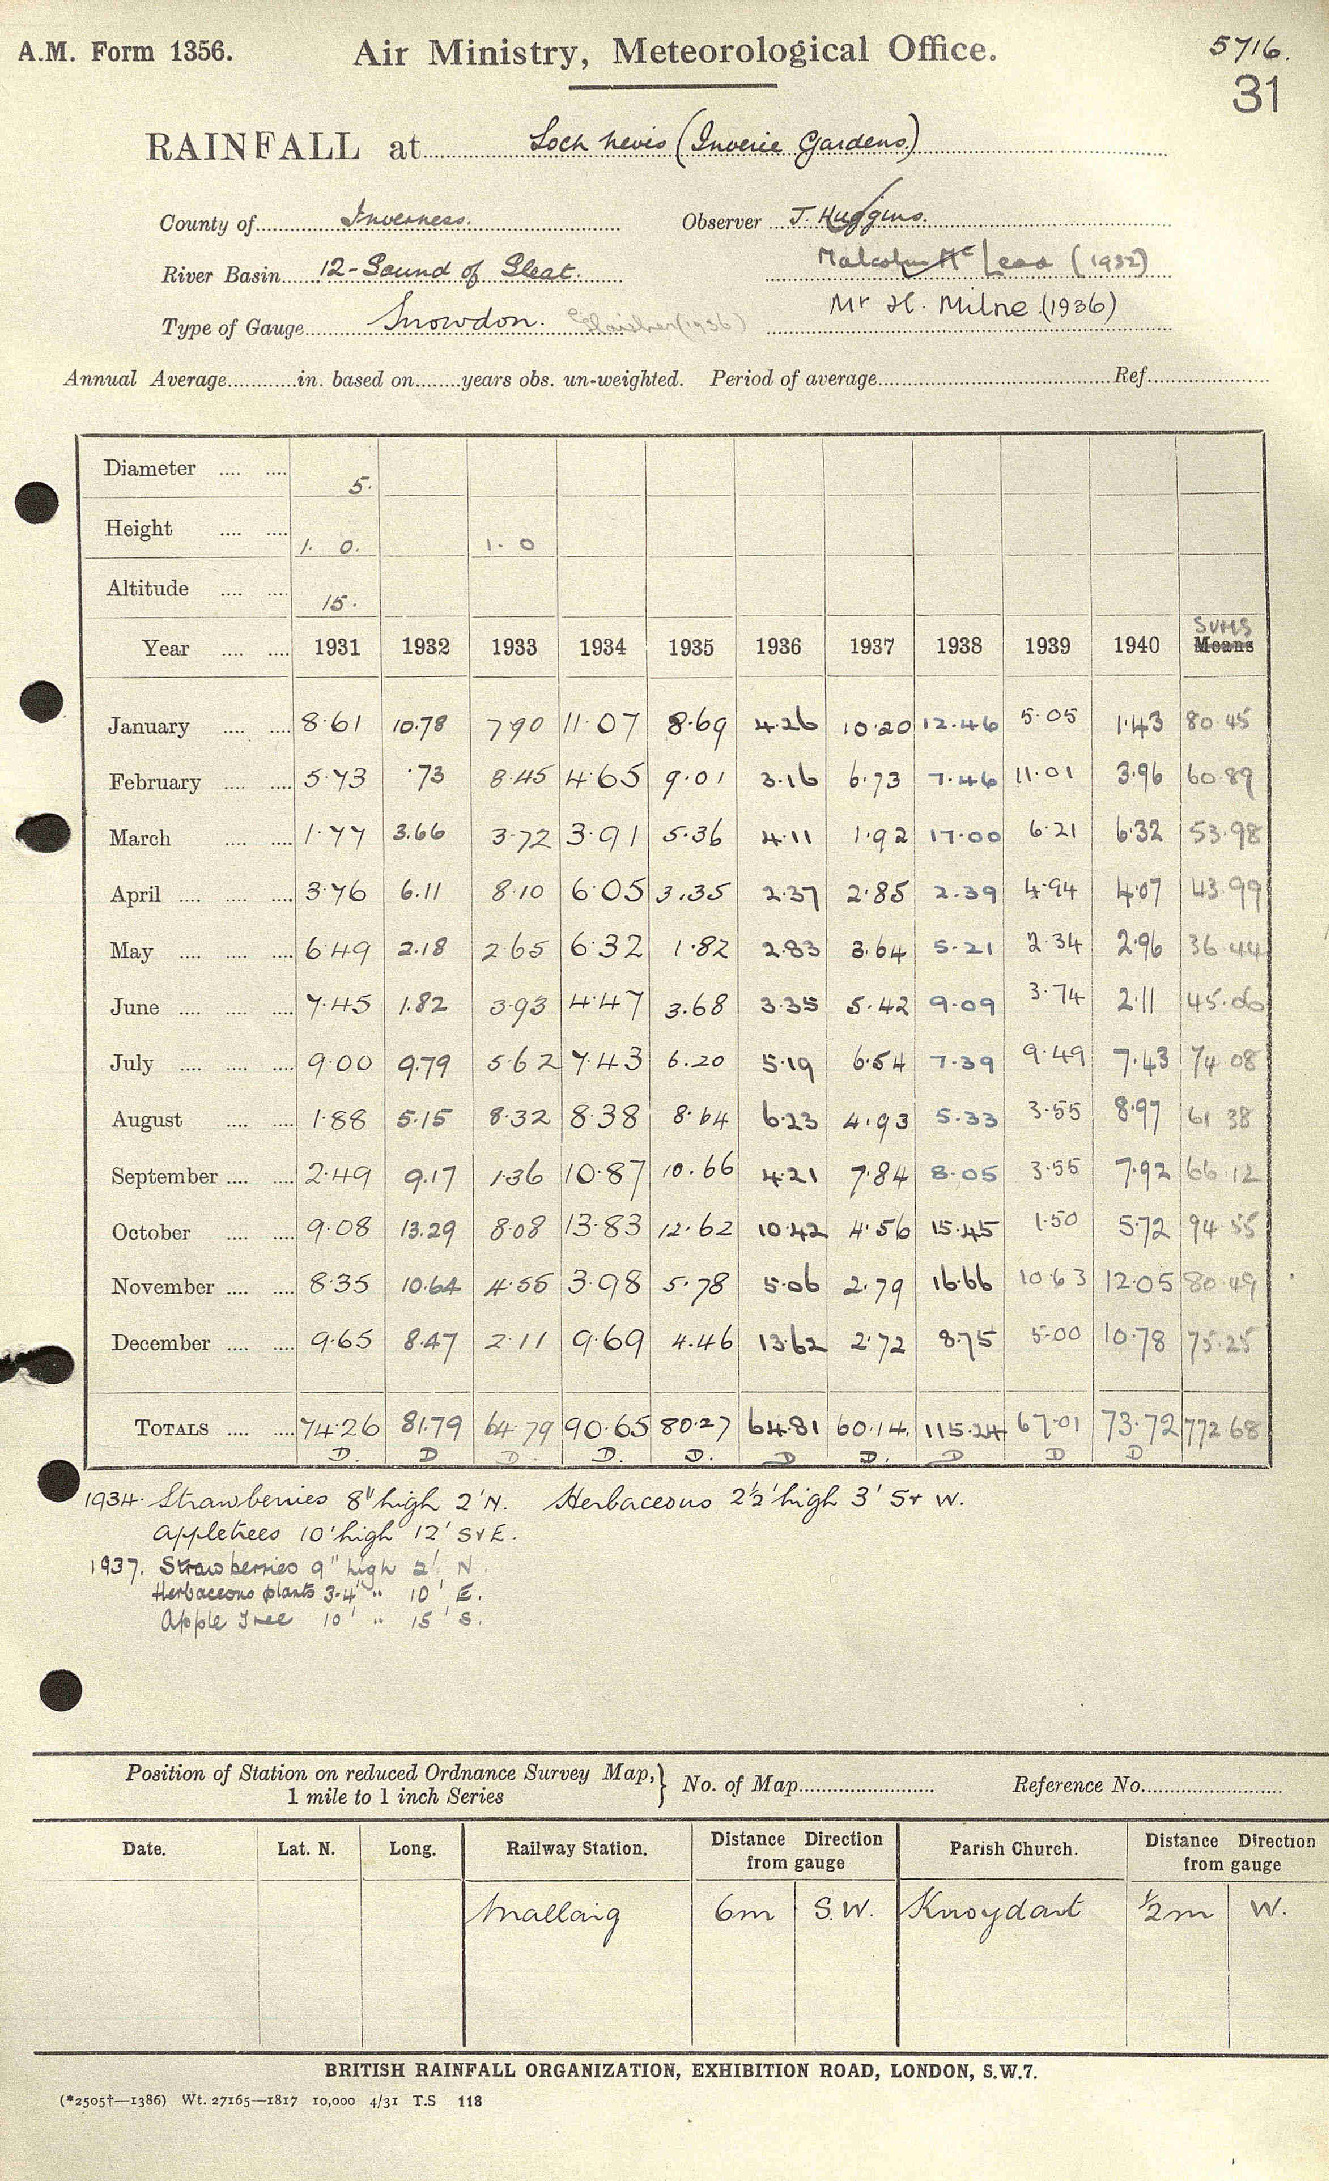 A.M. Form 1356. Air Ministry, Meteorological Office. 5716.
31
RAINFALL at Loch Nevis (Inverie Gardens)
County of Inverness. Observer J. Huggins.
River Basin 12-Sound of Sleat. Malcolm Mc Leod (1932)
Type of Gauge Snowdon. Glaisher (1936) Mr H. Milne (1936)
Annual Average in. based on years obs. un-weighted. Period of average Ref
Diameter 5.
Height 1. 0. 1. 0
Altitude 15.
SUMS
Year 1931 1932 1933 1934 1935 1936 1937 1938 1939 1940 Means
January 8.61 10.78 7.90 11.07 8.69 4.26 10.20 12.46 5.05 1.43 80.45
February 5.73 .73 8.45 4.65 9.01 3.16 6.73 7.46 11.01 3.96 60.89
March 1.77 3.66 3.72 3.91 5.36 4.11 1.92 17.00 6.21 6.32 53.98
April 3.76 6.11 8.10 6.05 3.35 2.37 2.85 2.39 4.94 4.07 43.99
May 6.49 2.18 2.65 6.32 1.82 2.83 3.64 5.21 2.34 2.96 36.44
June 7.45 1.82 3.93 4.47 3.68 3.35 5.42 9.09 3.74 2.11 45.06
July 9.00 9.79 5.62 7.43 6.20 5.19 6.54 7.39 9.49 7.43 74.08
August 1.88 5.15 8.32 8.38 8.64 6.23 4.93 5.33 3.55 8.97 61.38
September 2.49 9.17 1.36 10.87 10.66 4.21 7.84 8.05 3.55 7.92 66.12
October 9.08 13.29 8.08 13.83 12.62 10.42 4.56 15.45 1.50 5.72 94.55
November 8.35 10.64 4.55 3.98 5.78 5.06 2.79 16.66 10.63 12.05 80.49
December 9.65 8.47 2.11 9.69 4.46 13.62 2.72 8.75 5.00 10.78 75.25
TOTALS 74.26 81.79 64.79 90.65 80.27 64.81 60.14 115.24 67.01 73.72 772.68
D. D D. D. D. D D. D D D
1934. Strawberries 8" high 2' N. Herbaceous 2½' high 3' S & W.
Appletrees 10' high 12' S & E.
1937. Strawberries 9" high 2' N
Herbaceous plants 3-4' " 10' E.
Apple Tree 10' " 15' S.
Position of Station on reduced Ordnance Survey Map, } No. of Map Reference No.
1 mile to 1 inch Series
Date. Lat. N. Long. Railway Station. Distance Direction from gauge Parish Church. Distance Direction from gauge
Mallaig 6m S.W. Knoydart ½m W.
BRITISH RAINFALL ORGANIZATION, EXHIBITION ROAD, LONDON, S.W.7.
(*2505†—1386) Wt. 27165—1817 10,000 4/31 T.S 118